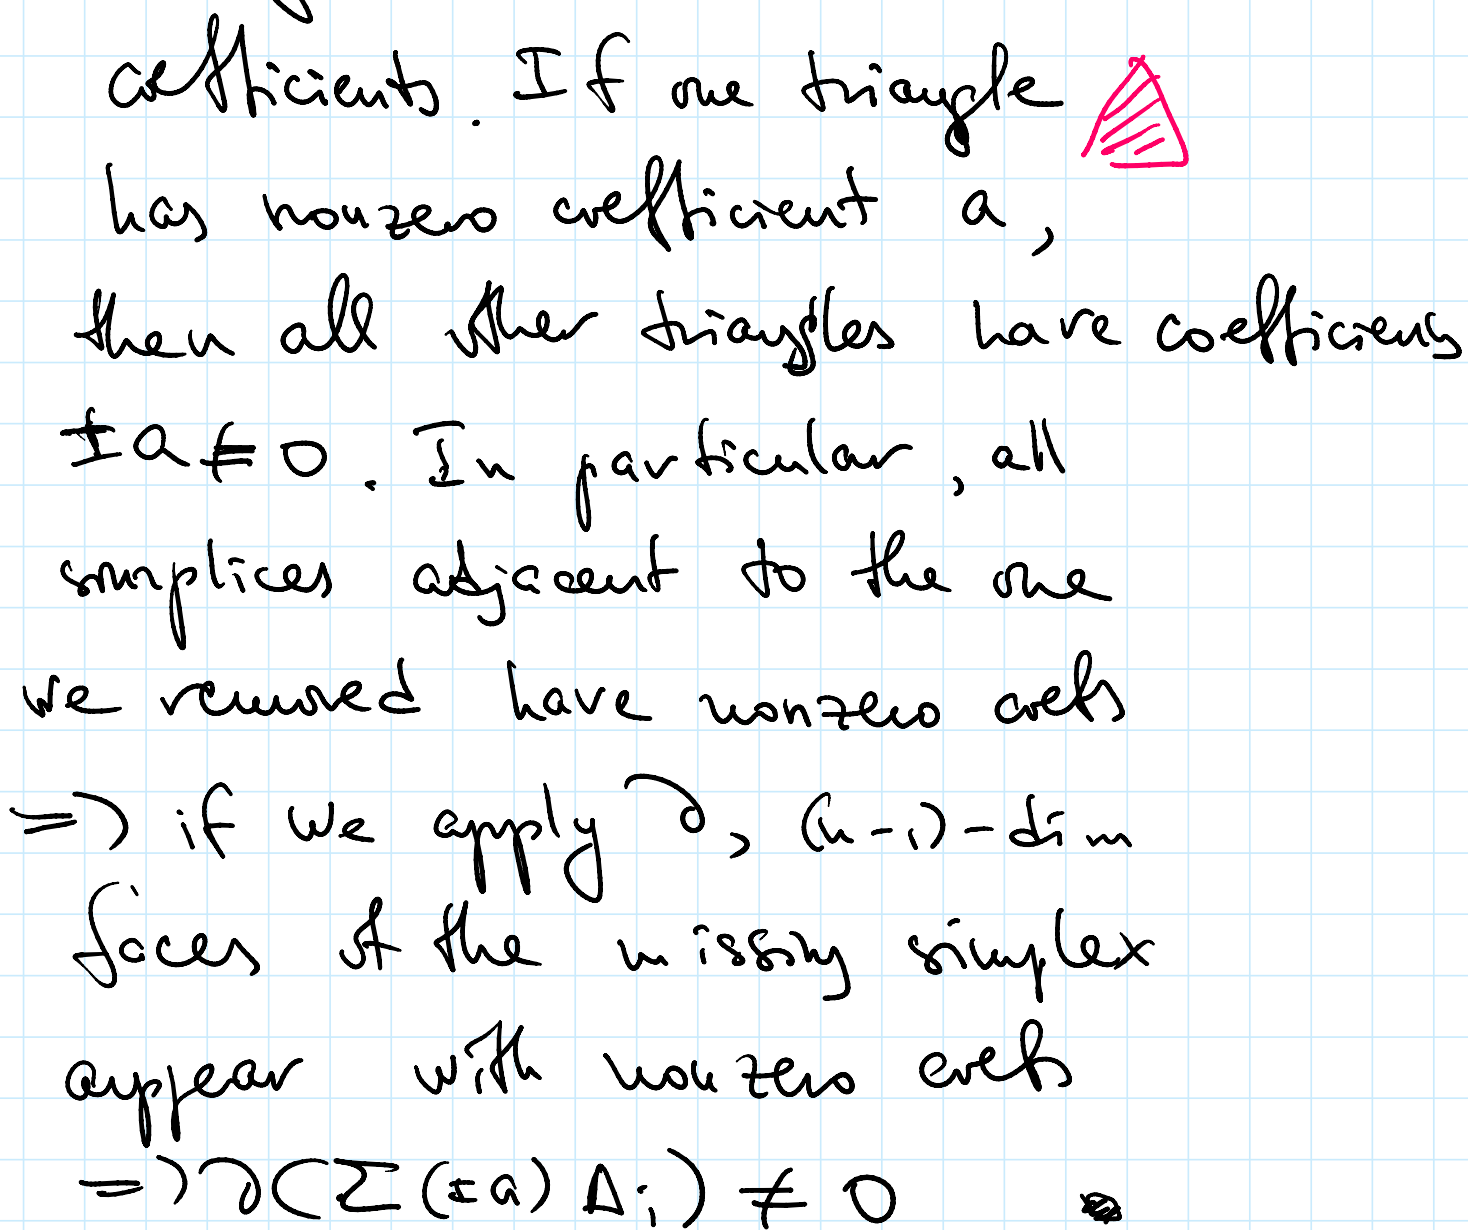 coefficients. If one triangle
has nonzero coefficient a,
then all other triangles have coefficients
±a≠0. In particular, all
simplices adjacent to the one
we removed have nonzero coefs
=> if we apply ∂, (n-1)-dim
faces of the missing simplex
appear with nonzero coefs
=> ∂(Σ(±a)Δi) ≠ 0